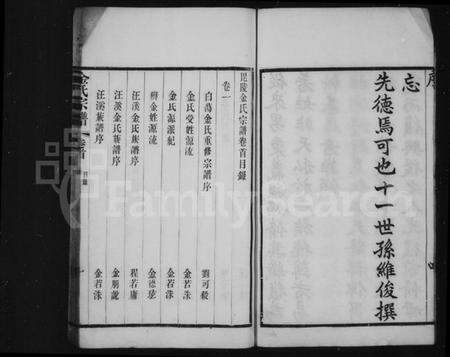 序
忘
先德焉可也十一世孫維俊撰
毘陵金氏宗譜卷首目錄
卷一
白蕩金氏重修宗譜序 劉可毅
金氏受姓源流 金若洙
金氏源派紀 金若洙
辨金姓源流 金德玹
汪溪金氏族譜序 程若庸
汪溪金氏族譜序 金朋說
汪溪族譜序 金若洙
金氏宗譜 卷首 目錄 一
FamilySearch